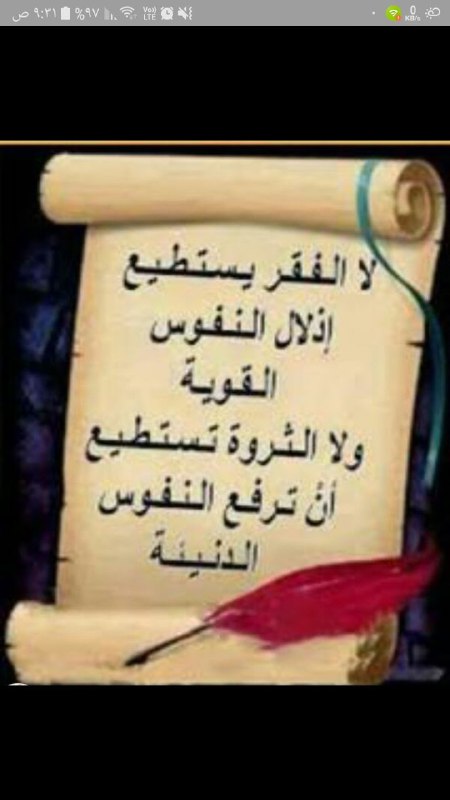 ٩:٣١ ص ٩٧% Vo) LTE 0 KB/s
لا الفقر يستطيع
إذلال النفوس
القوية
ولا الثروة تستطيع
أنْ ترفع النفوس
الدنيئة